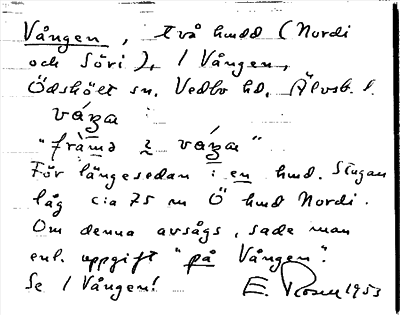 Vången, två hmdd (Nordi
och Söri), / Vången,
Ödskölt sn. Vedbo hd. Älvsb. l.
váŋa
"främə i váŋa"
För längesedan : en hmd. Stugan
låg c:a 75 m Ö hmd Nordi.
Om denna avsågs, sade man
enl. uppgift "på Vången".
Se / Vången!
E. Rosell 1953